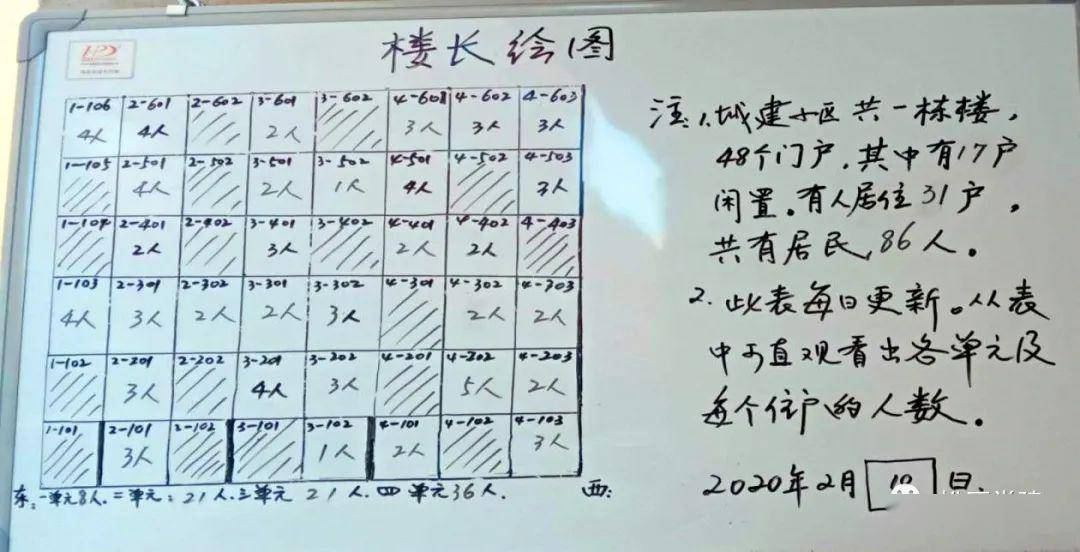 楼长绘图
1-106 2-601 2-602 3-601 3-602 4-601 4-602 4-603
4人 4人 2人 3人 3人 3人
1-105 2-501 2-502 3-501 3-502 4-501 4-502 4-503
4人 2人 1人 4人 3人
1-104 2-401 2-402 3-401 3-402 4-401 4-402 4-403
2人 3人 2人 2人
1-103 2-301 2-302 3-301 3-302 4-301 4-302 4-303
4人 3人 2人 2人 3人 2人 2人
1-102 2-201 2-202 3-201 3-202 4-201 4-202 4-203
3人 4人 3人 5人 2人
1-101 2-101 2-102 3-101 3-102 4-101 4-102 4-103
3人 1人 2人 3人
东: 一单元8人. 二单元: 21人. 三单元 21人. 四单元36人. 西:
注1.城建小区共一栋楼,
48个门户,其中有17户
闲置。有人居住31户,
共有居民86人。
2. 此表每日更新。从表
中可直观看出各单元及
每个住户的人数。
2020年2月 10 日.